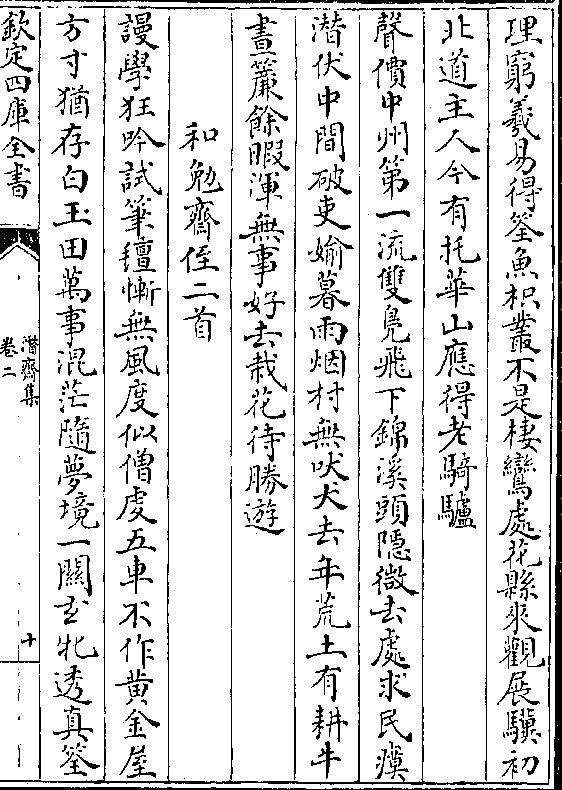 理窮羲易得筌魚枳叢不是棲鸞處花縣來觀展驥初
北道主人今有托華山應得老騎驢
聲價中州第一流雙鳧飛下錦溪頭隱微去處求民瘼
潛伏中間破吏媮暮雨烟村無吠犬去年荒土有耕牛
晝簾餘暇渾無事好去栽花待勝遊
和勉齋侄二首
謾學狂吟試筆䵣慚無風度似僧虔五車不作黄金屋
方寸猶存白玉田萬事混茫隨夢境一關玄牝透真筌
欽定四庫全書
潛齋集
卷二
十